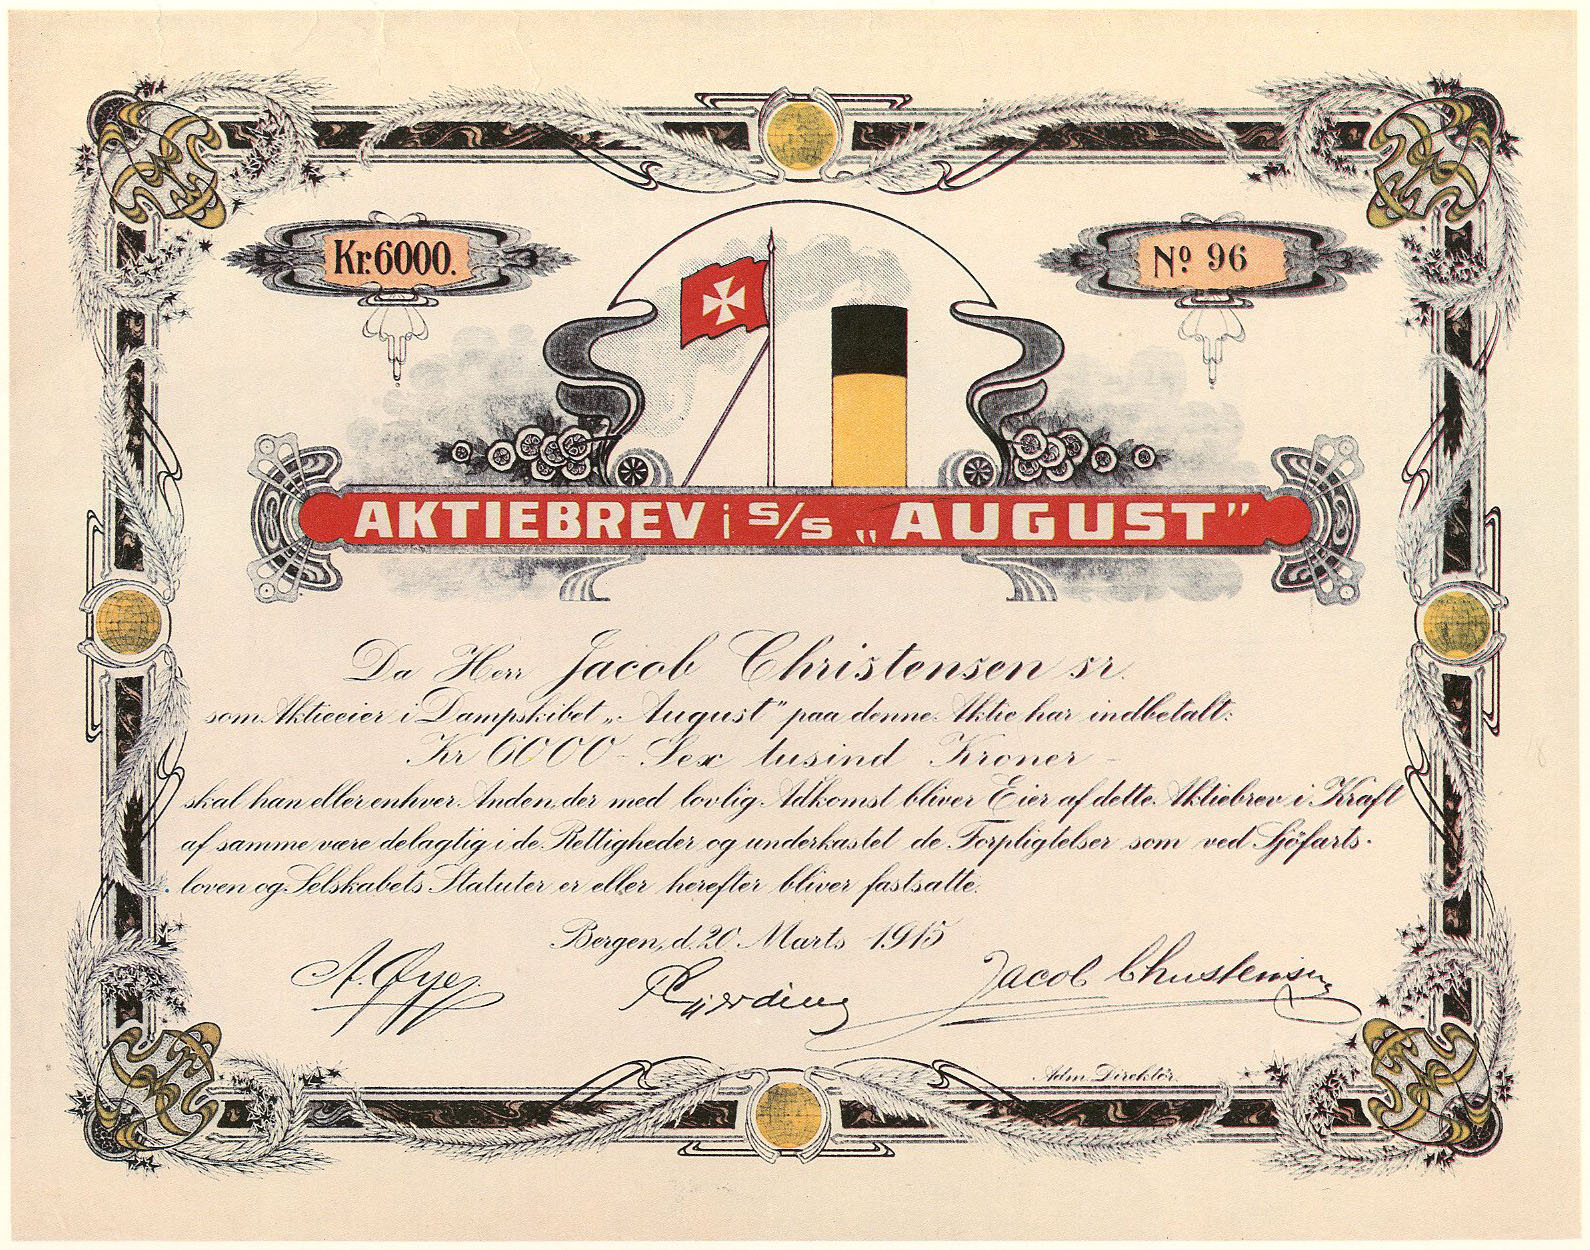 Kr. 6000.
No 96
AKTIEBREV i S/S „AUGUST”
Da Herr Jacob Christensen sr.
som Aktieeier i Dampskibet „August” paa denne Aktie har indbetalt:
Kr 6000 - Sex tusind Kroner -
skal han eller enhver Anden, der med lovlig Adkomst bliver Eier af dette Aktiebrev i Kraft
af samme være delagtig i de Rettigheder og underkastet de Forpligtelser som ved Sjöfarts-
loven og Selskabets Statuter er eller herefter bliver fastsatte.
Bergen, d. 20 Marts 1915
A. Øye
Jacob Christensen
Adm. Direktör.